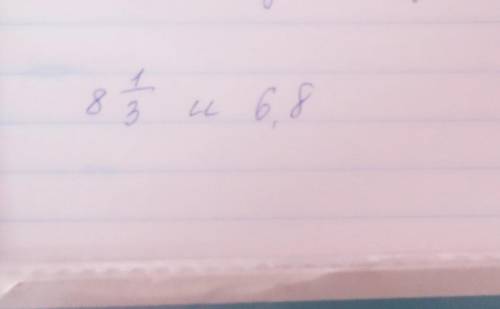 8 1/3 и 6,8